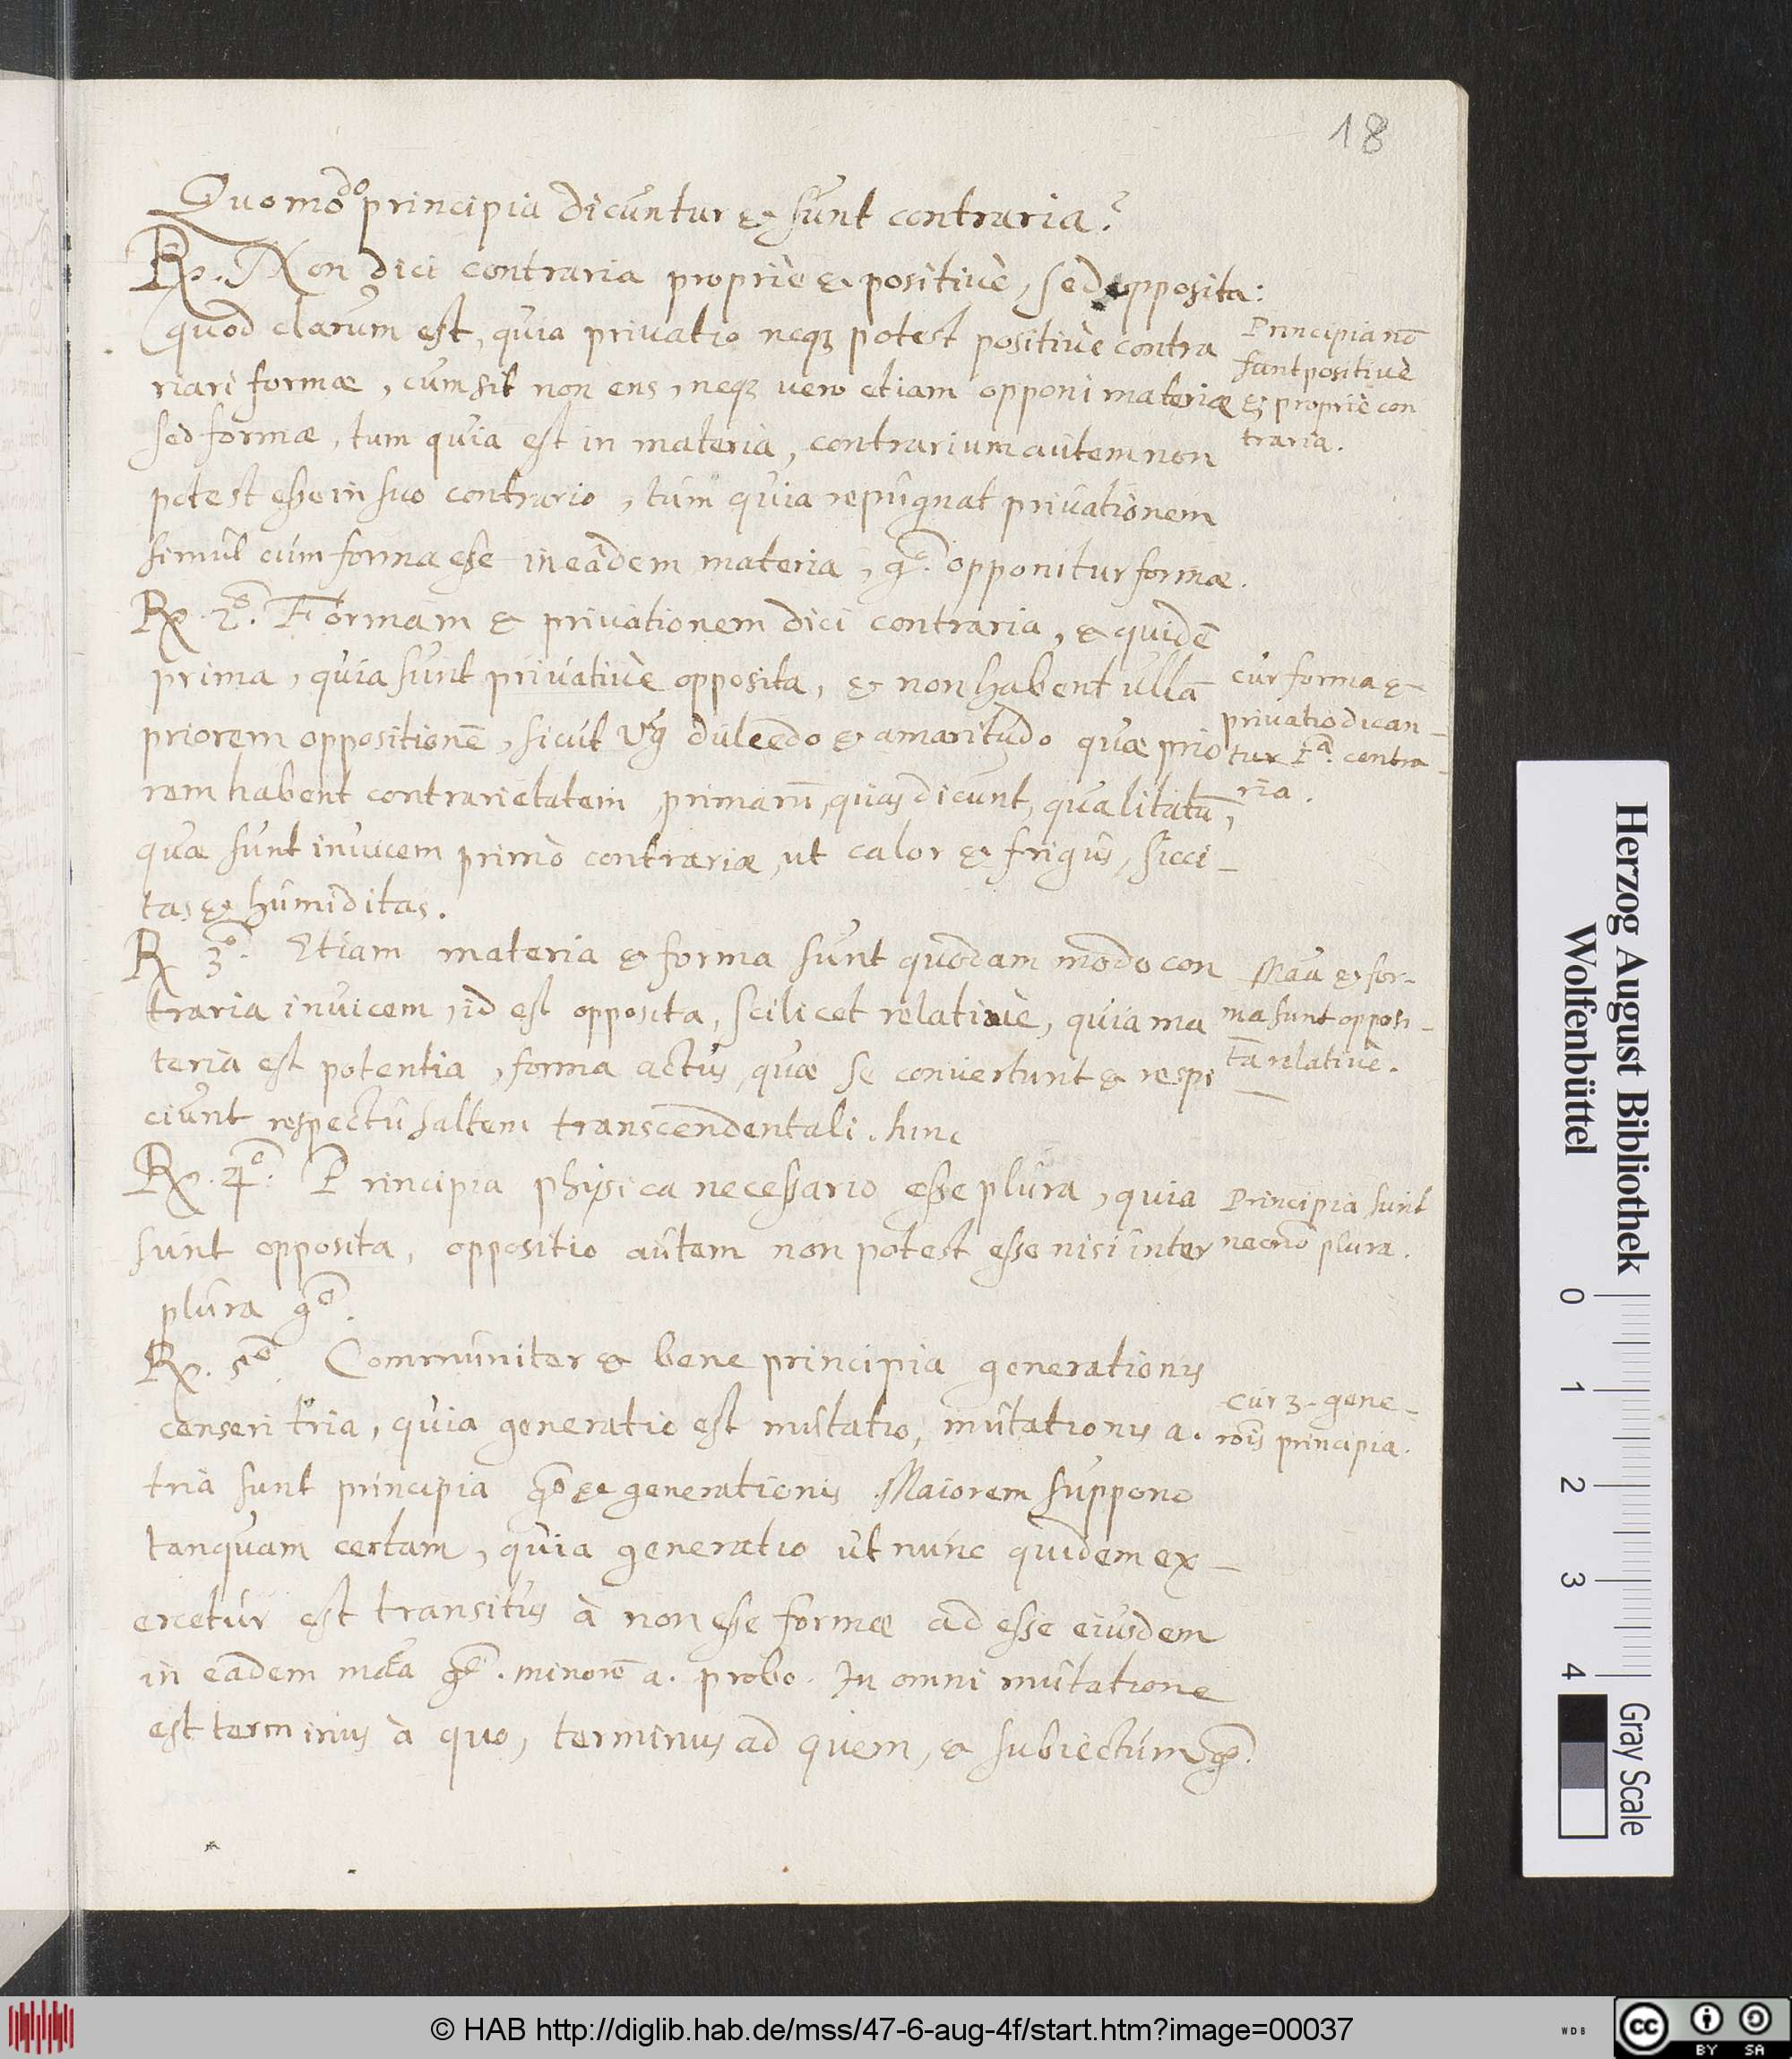 18
Quomō^do principia dicuntur & sunt contraria?
R. Non dici contraria propriè & positivè, sed opposita:
quod clarum est, quia privatio neq3 potest positivè contra
riari formæ, cum sit non ens, neq3 vero etiam opponi materiæ
sed formæ, tum quia est in materia, contrarium autem non
potest esse in suo contrario, tum quia repugnat privationem
simul cum forma esse in eâdem materia, g^o. opponitur formæ.
Principia nō
sunt positivè
& propriè con
traria.
R. 2^o. Formam & privationem dici contraria, & quidē
prima, quia sunt privativè opposita, & non habent ullā
priorem oppositionē, sicut vg dulcedo & amaritudo quæ prio
rem habent contrarietatem primarū, quas dicunt, qualitatū,
quæ sunt invicem primò contrariæ, ut calor & frigus, sicci-
tas & humiditas.
cur forma &
privatio dican-
tur 1^a. contra-
ria.
R 3^o. Etiam materia & forma sunt quodam modo con
traria invicem, id est opposita, scilicet relativè, quia ma
teria est potentia, forma actus, quæ se convertunt & respi
ciunt respectu saltem transcendentali. hinc
& for-
ma sunt opposi-
ta relativè.
R. 4^o. Principia physica necessario esse plura, quia
sunt opposita, oppositio autem non potest esse nisi inter
plura g^o.
Principia sunt
necrió plura.
R. 5^o. Communiter & bene principia generationis
censeri tria, quia generatio est mutatio, mutationis a.
tria sunt principia g^o & generationis. Maiorem suppono
tanquam certam, quia generatio ut nunc quidem ex-
ercetur est transitus à non esse formæ ad esse eiusdem
in eadem mā^a g^o. minorē a. probo. In omni mutatione
est terminus à quo, terminus ad quem, & subiectum g^o.
cur 3. gene-
rōis principia.
Herzog August Bibliothek
Wolfenbüttel
0 1 2 3 4
Gray Scale
© HAB http://diglib.hab.de/mss/47-6-aug-4f/start.htm?image=00037
WDB
CC BY SA